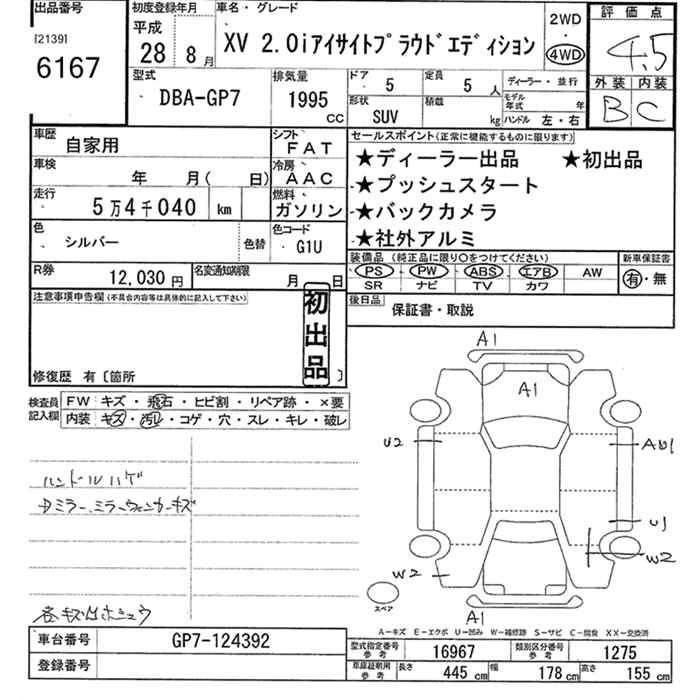 出品番号 初度登録年月 車名・グレード 評価点
[2139] 平成 2WD
6167 28 8月 XV 2.0iアイサイトプラウドエディション 4WD 4.5
型式 排気量 ドア 5 定員 5人 ディーラー・並行 外装 内装
DBA-GP7 1995 CC 形状 SUV 積載 kg モデル年式 年 B C
ハンドル 左・右
車歴 自家用 シフト FAT セールスポイント(正常に機能するものに限ります)
車検 年 月( 日) 冷房 AAC ★ディーラー出品 ★初出品
走行 5万4千040 km 燃料 ガソリン ★プッシュスタート
★バックカメラ
色 シルバー 色替 色コード G1U ★社外アルミ
装備品 (純正品に限り○をつけてください) 新車保証書
R券 12,030円 名変通知期限 月 日 PS PW ABS エアB AW 有・無
SR ナビ TV カワ
注意事項申告欄(不具合内容等は具体的に記入して下さい) 後日品 保証書・取説
初出品
修復歴 有〔箇所 〕
検査員記入欄 FW キズ・飛石・ヒビ割・リペア跡・×要
内装 キズ・汚れ・コゲ・穴・スレ・キレ・破レ
A1
A1
U2
ハンドルハゲ
ミラー、ミラーウィンカーキズ
U1
W2
W2
スペア
A1
A−キズ E−エクボ U−凹み W−補修跡 S−サビ C−腐食 XX−交換済
車台番号 GP7-124392 型式指定番号 参考 16967 類別区分番号 参考 1275
登録番号 車庫証明用 参考 長さ 445 cm 幅 178 cm 高さ 155 cm